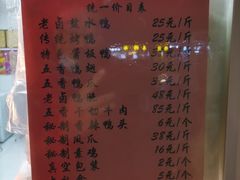 统一价目表
老卤盐水鸭 25元/斤
传统烤鸭 25元/斤
特色酱板鸭
五香鸭翅 30元/斤
五香鸭爪
老卤鸭肫 48元/斤
五香牛肉 85元/斤
秘制香辣鸭头 6元/个
秘制凤爪 38元/斤
秘制素鸡 16元/斤
真空包装 2元/个
5元/个